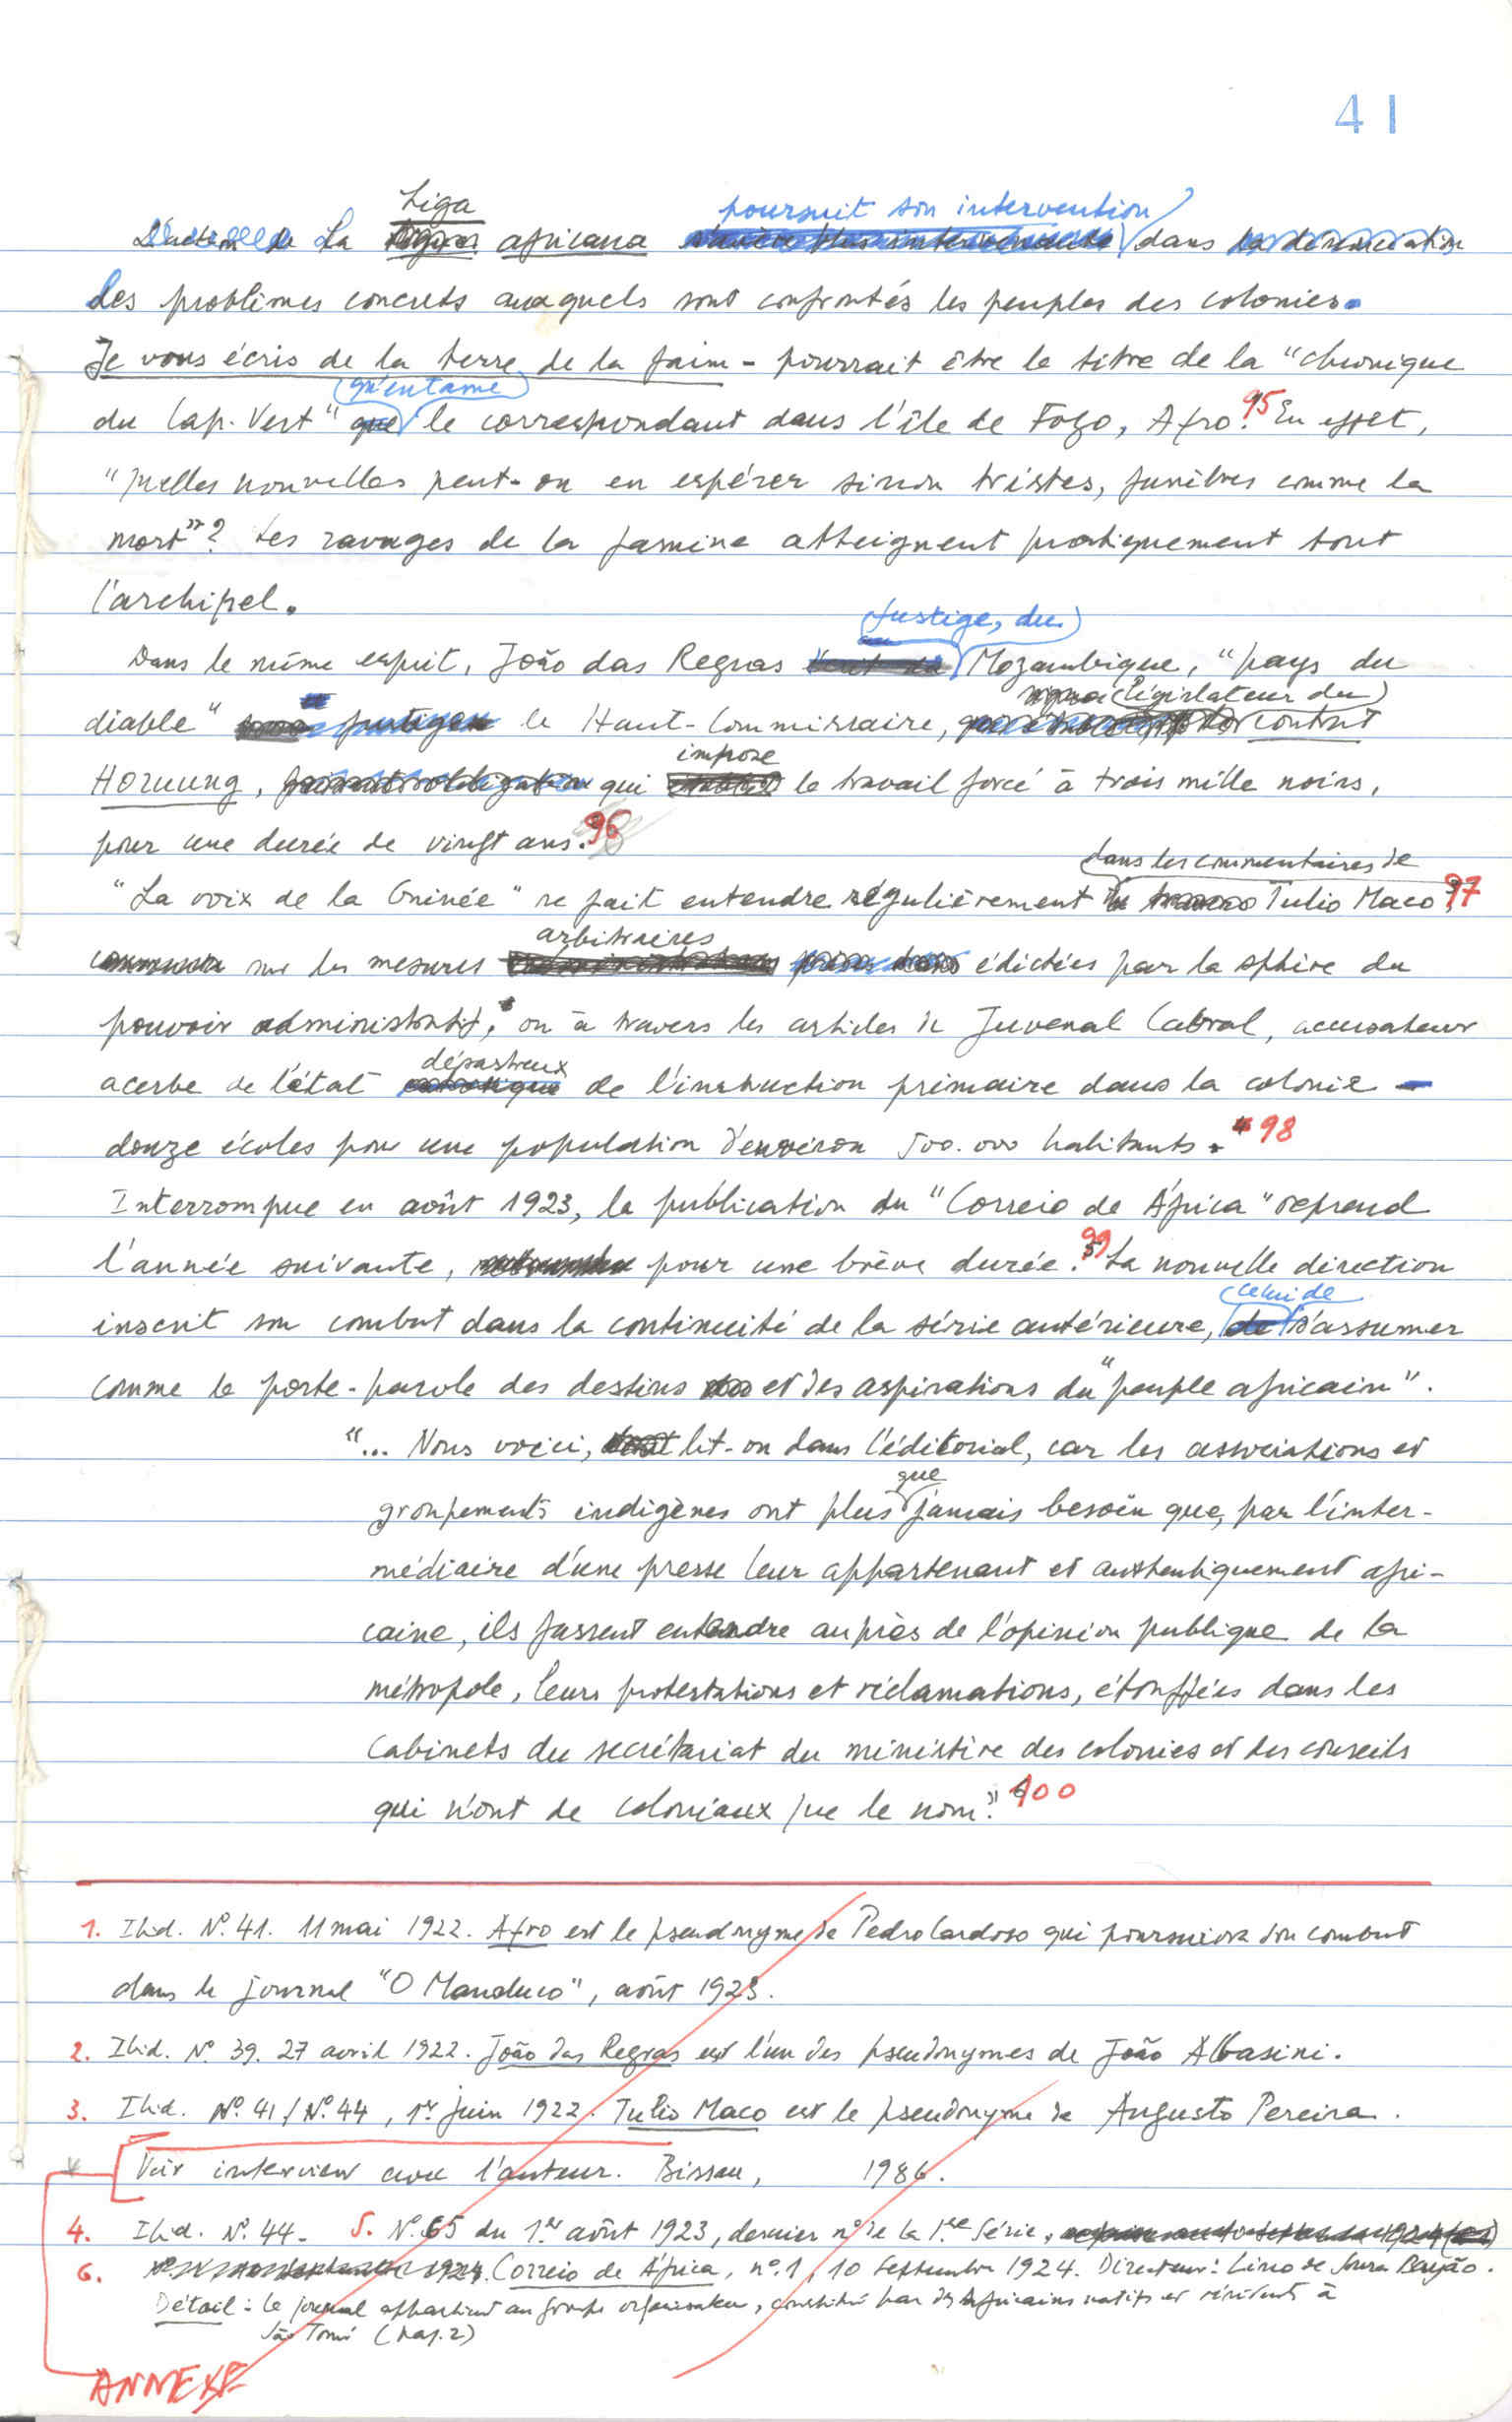 41
Liga
poursuit son intervention
La africana dans
les problèmes concrets auxquels sont confrontés les peuples des colonies.
Je vous écris de la terre de la faim - pourrait être le titre de la "chronique
qu'entame
du Cap. Vert" que le correspondant dans l'île de Fogo, Afro. 95 En effet,
"quelles nouvelles peut-on en espérer sinon tristes, funèbres comme la
mort"? Les ravages de la famine atteignent pratiquement tout
l'archipel.
fustige, du
Dans le même esprit, João das Regras Mozambique, "pays du
législateur du
diable" le Haut-Commissaire, contrat
impose
Hornung, qui le travail forcé à trois mille noirs,
pour une durée de vingt ans. 96
dans les commentaires de
"La voix de la Guinée" se fait entendre régulièrement Tulio Maco, 97
arbitraires
sur les mesures édictées par la sphère du
pouvoir administratif, ou à travers les articles de Juvenal Cabral, accusateur
désastreux
acerbe de l'état de l'instruction primaire dans la colonie -
douze écoles pour une population d'environ 500.000 habitants. 98
Interrompue en août 1923, la publication du "Correio de África" reprend
l'année suivante, pour une brève durée. 99 La nouvelle direction
celui de
inscrit son combat dans la continuité de la série antérieure, de s'assumer
comme le porte-parole des destins et des aspirations du "peuple africain".
"... Nous voici, lit-on dans l'éditorial, car les associations et
que
groupements indigènes ont plus jamais besoin que, par l'inter-
médiaire d'une presse leur appartenant et authentiquement afri-
caine, ils fassent entendre auprès de l'opinion publique de la
métropole, leurs protestations et réclamations, étouffées dans les
cabinets du secrétariat du ministère des colonies et des conseils
qui n'ont de coloniaux que le nom." 100
1. Ibid. Nº 41. 11 mai 1922. Afro est le pseudonyme de Pedro Cardoso qui poursuivra son combat
dans le journal "O Manduco", août 1923.
2. Ibid. Nº 39. 27 avril 1922. João das Regras est l'un des pseudonymes de João Albasini.
3. Ibid. Nº 41 / Nº 44, 1er juin 1922. Tulio Maco est le pseudonyme de Augusto Pereira.
* Voir interview avec l'auteur. Bissau, 1986.
4. Ibid. Nº 44. 5. Nº 65 du 1er août 1923, dernier nº de la 1ère Série,
6. 1924. Correio de África, nº 1, 10 Septembre 1924. Directeur:
Détail: le journal appartient au groupe organisateur, constitué par des Africains natifs et résidents à
São Tomé (pag. 2)
ANNEXE